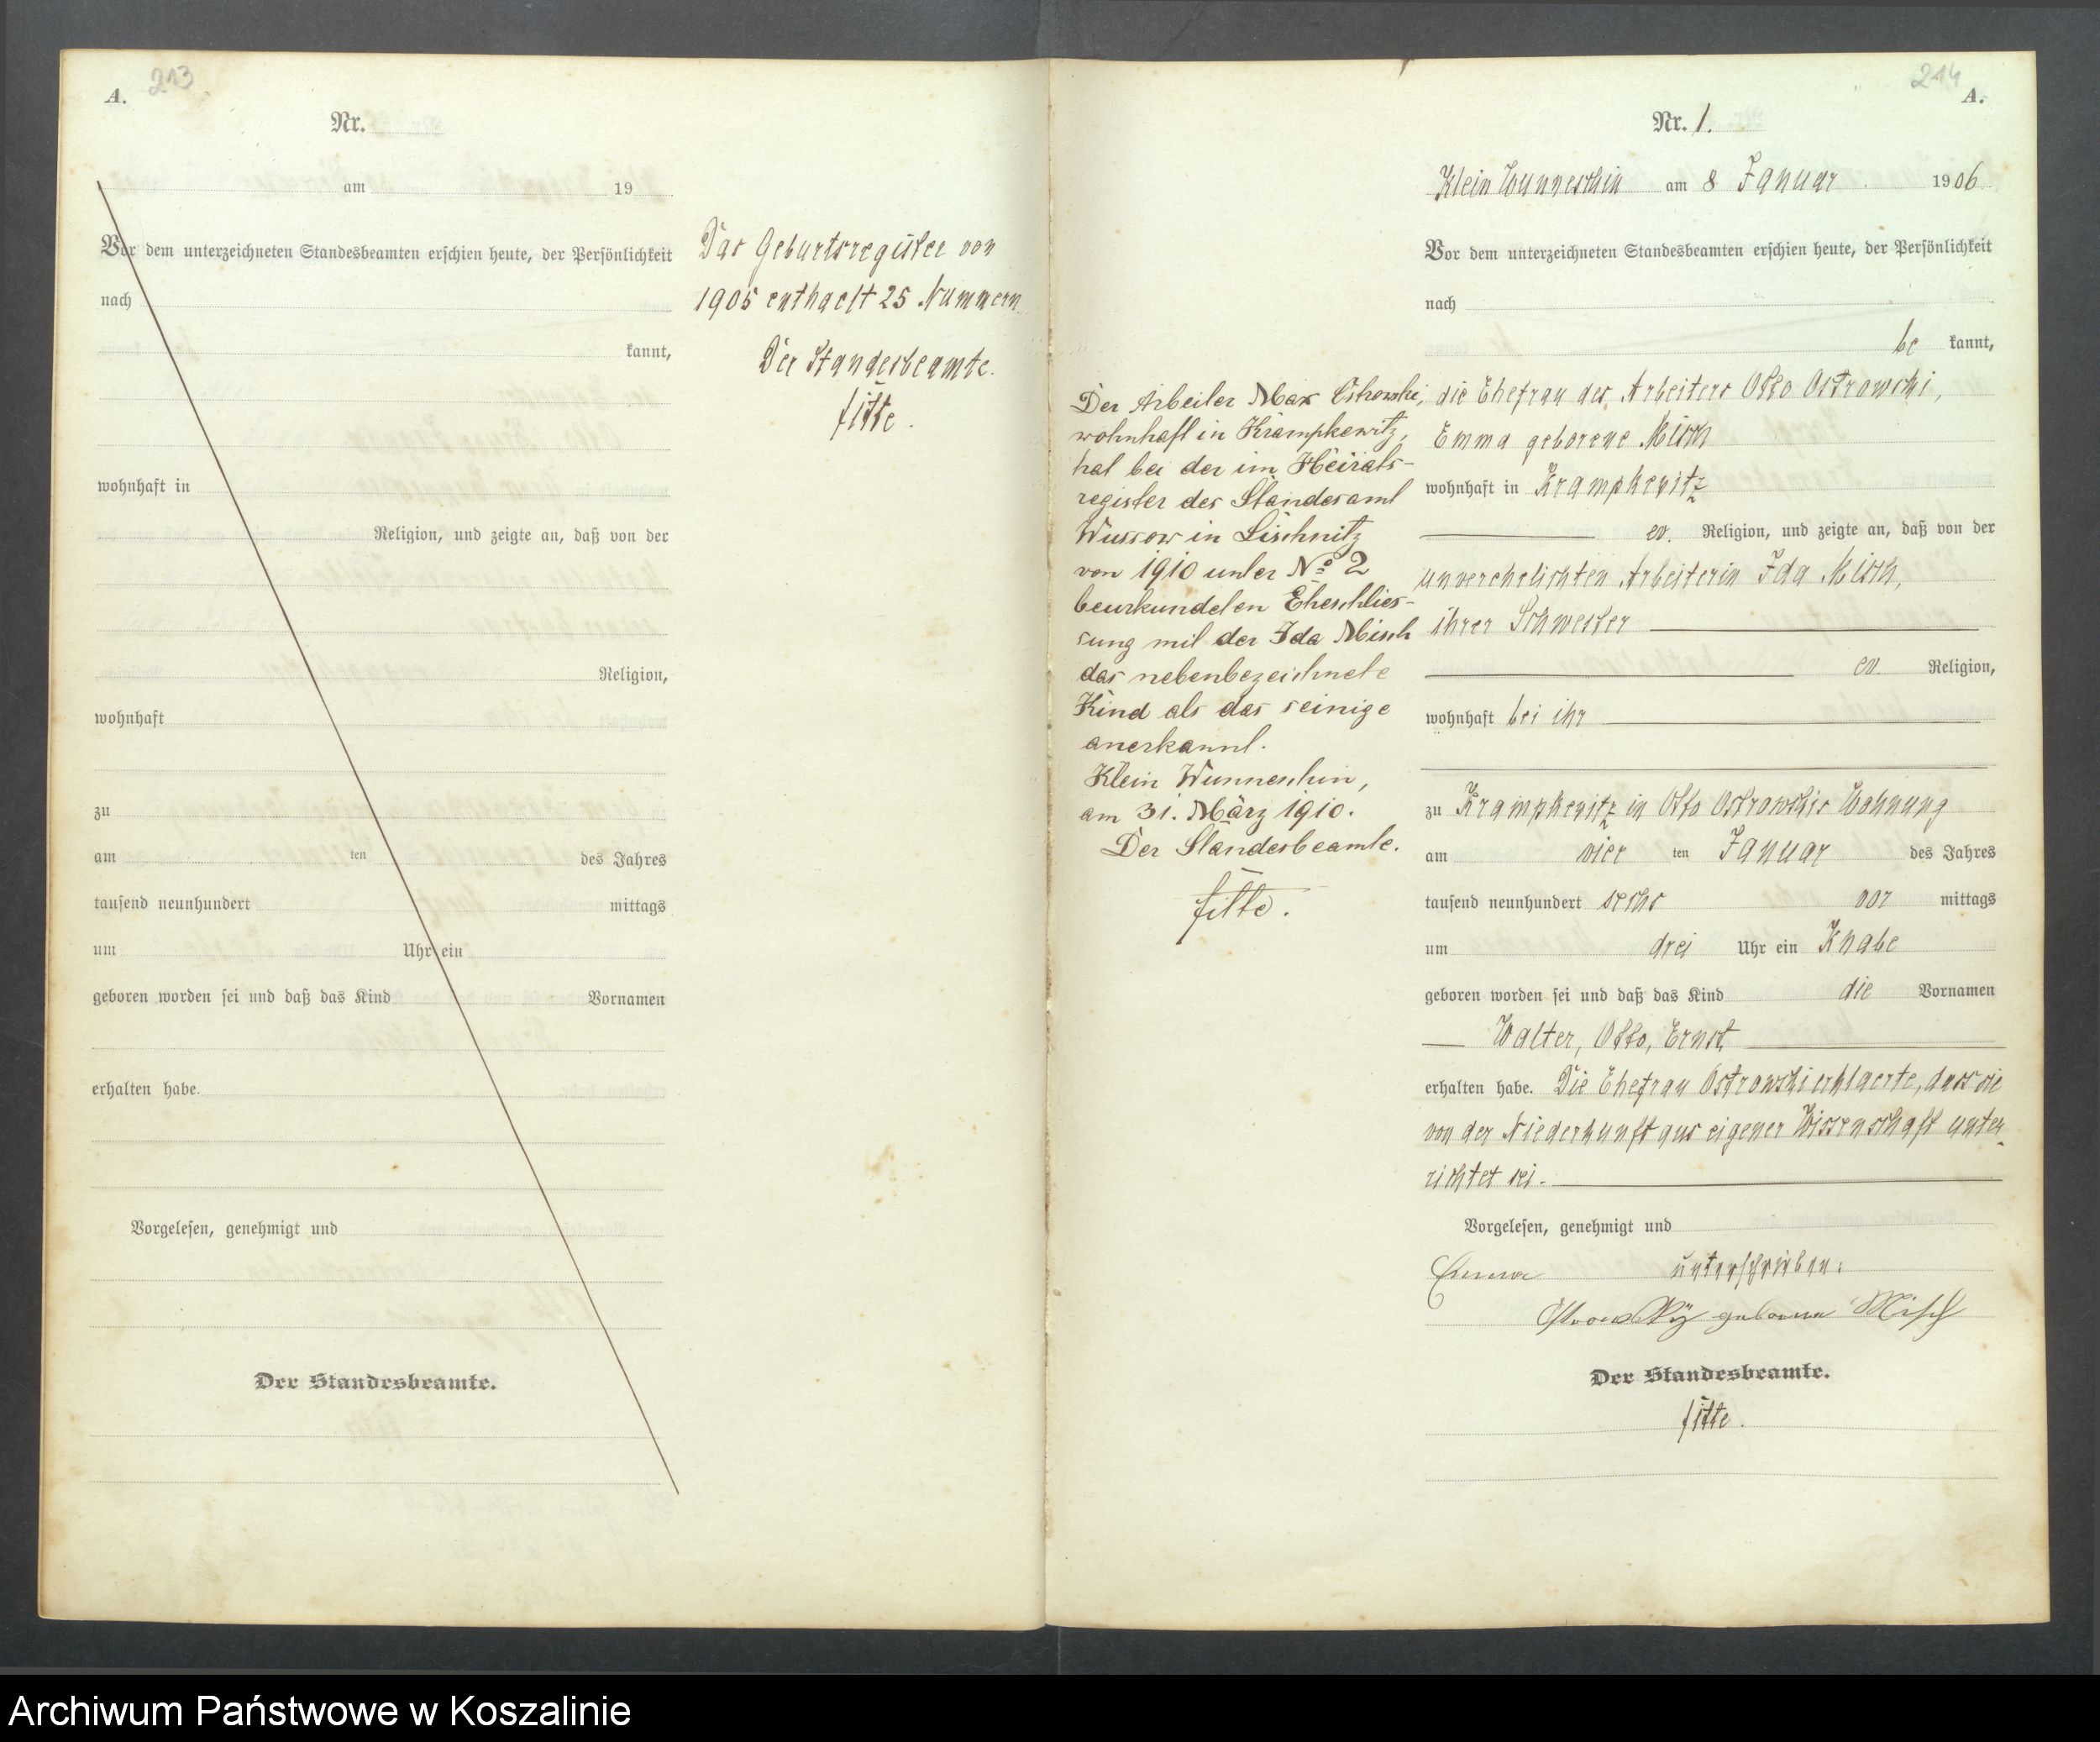 A. 213
Nr.
am 19
Vor dem unterzeichneten Standesbeamten erschien heute, der Persönlichkeit
nach
kannt,
wohnhaft in
Religion, und zeigte an, daß von der
Religion,
wohnhaft
zu
am ten des Jahres
tausend neunhundert mittags
um Uhr ein
geboren worden sei und daß das Kind Vornamen
erhalten habe.
Vorgelesen, genehmigt und
Der Standesbeamte.
Das Geburtsregister von
1905 enthaelt 25 Nummern
Der Standesbeamte.
Fitte.
Der Arbeiter Max Ostrowski,
wohnhaft in Krampkewitz,
hat bei der im Heirats-
register des Standesamt
Wussow in Lischnitz
von 1910 unter No 2
beurkundeten Eheschlies-
sung mit der Ida Misch
das nebenbezeichnete
Kind als das seinige
anerkannt.
Klein Wunneschin,
am 31. März 1910.
Der Standesbeamte.
Fitte.
214 A.
Nr. 1.
Klein Wunneschin am 8 Januar 1906
Vor dem unterzeichneten Standesbeamten erschien heute, der Persönlichkeit
nach
be kannt,
die Ehefrau des Arbeiters Otto Ostrowski,
Emma geborene Misch
wohnhaft in Krampkewitz
ev. Religion, und zeigte an, daß von der
unverehelichten Arbeiterin Ida Misch,
ihrer Schwester
ev. Religion,
wohnhaft bei ihr
zu Krampkewitz in Otto Ostrowskis Wohnung
am vier ten Januar des Jahres
tausend neunhundert sechs vor mittags
um drei Uhr ein Knabe
geboren worden sei und daß das Kind die Vornamen
Walter, Otto, Ernst
erhalten habe. Die Ehefrau Ostrowski erklaerte, dass sie
von der Niederkunft aus eigener Wissenschaft unter-
richtet sei.
Vorgelesen, genehmigt und
unterschrieben:
Emma
Ostrowsky geborene Misch
Der Standesbeamte.
Fitte.
Archiwum Państwowe w Koszalinie